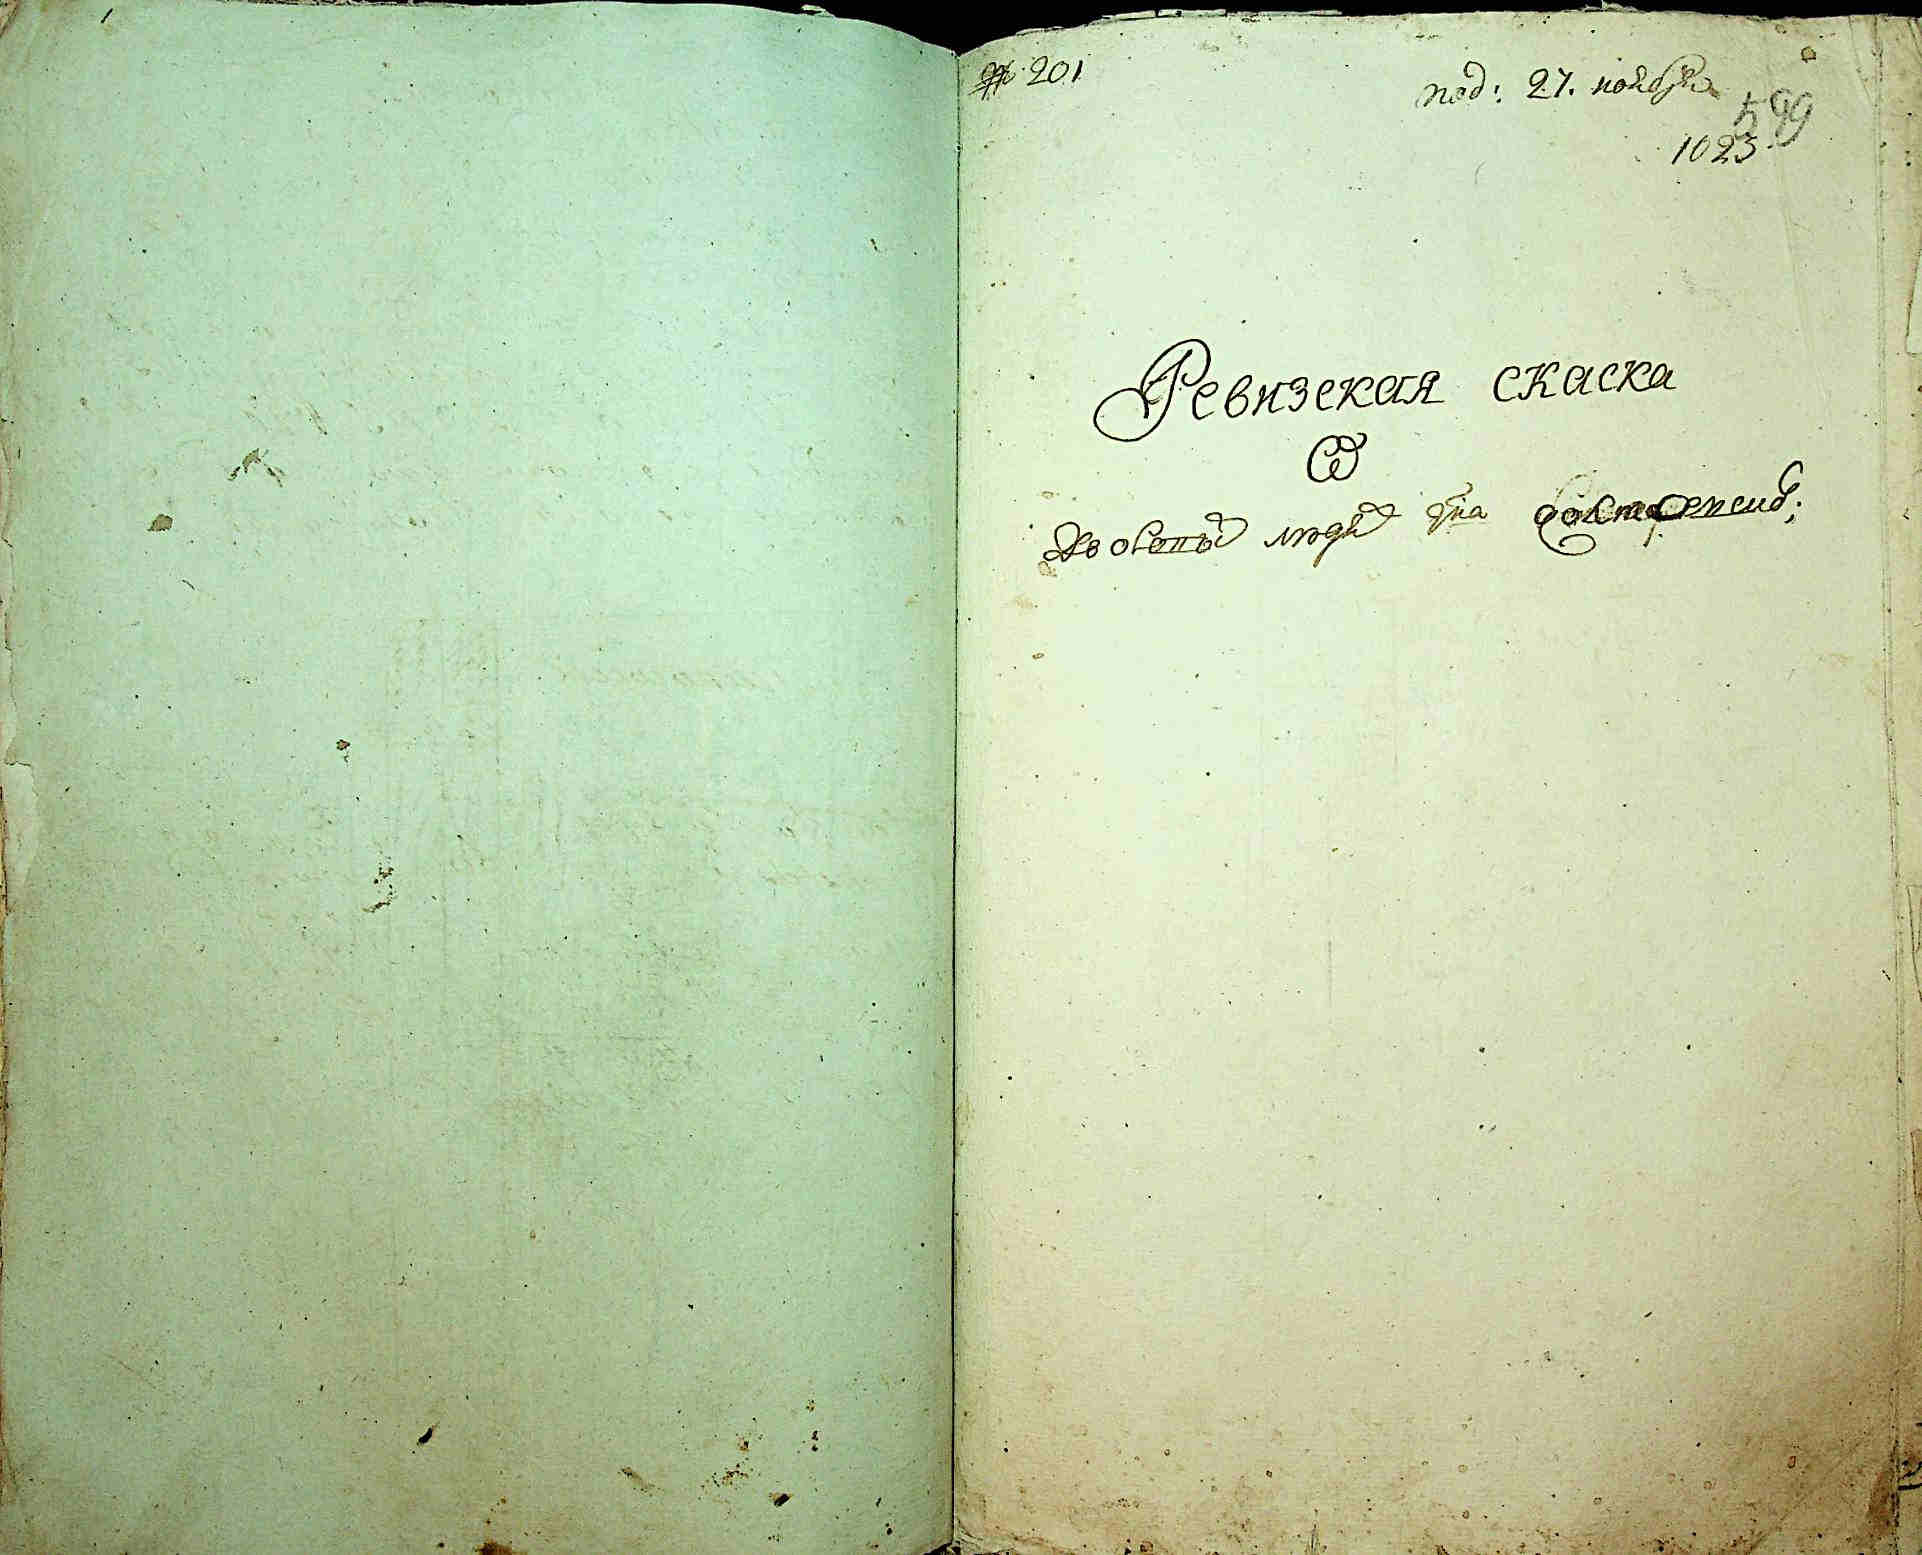 № 201
под: 27. ноября
599
1023
Ревизская скаска
Ѿ
дворовы людей